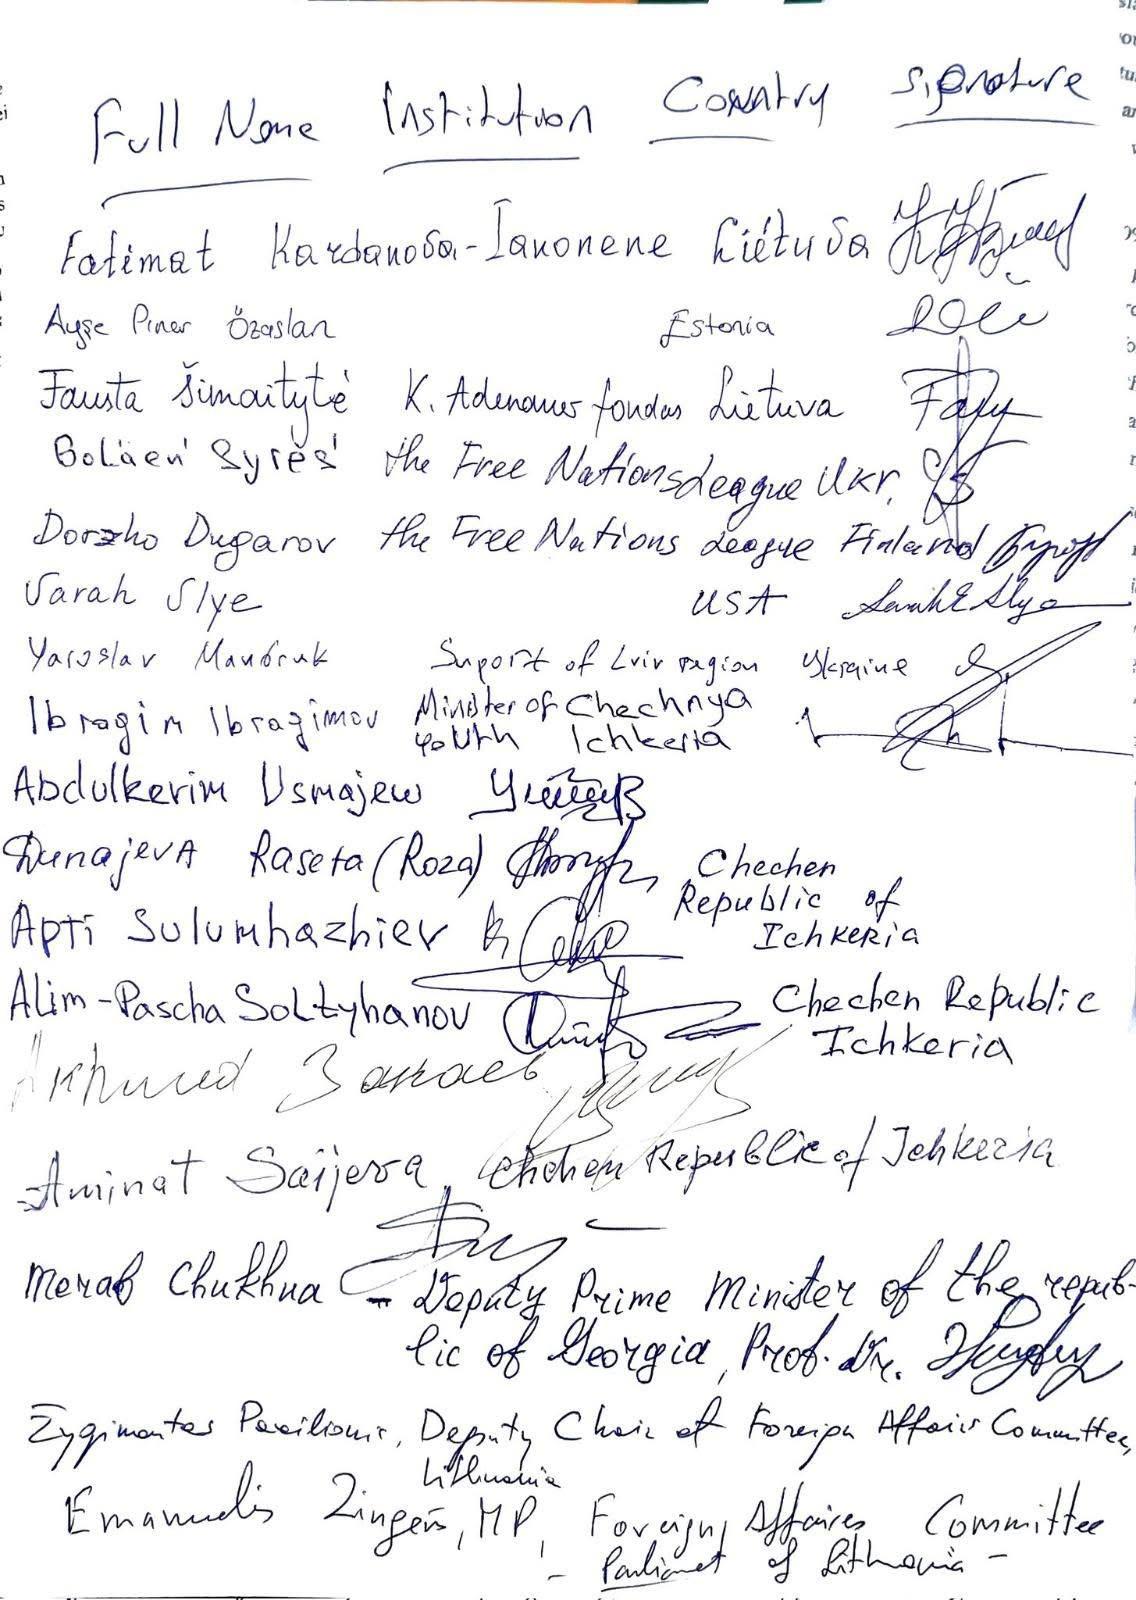 Full Name Institution Country Signature
Fatimat Kardanova-Ianonene Lietuva
Ayşe Pınar Özaslan Estonia
Fausta Šimaitytė K. Adenauer fondas Lietuva
Boläeń Syreś the Free Nations League Ukr.
Dorzho Dugarov the Free Nations League Finland
Sarah Slye USA
Yaroslav Suport of Lviv region Ukraine
Ibragim Ibragimov Minister of Chechnya
youth Ichkeria
Abdulkerim Usmajew
Dunajeva Raseta (Roza) Chechen
Republic of
Apti Sulumhazhiev Ichkeria
Alim-Pascha Soltyhanov Chechen Republic
Ichkeria
Akhmed Закаев
Aminat Saijeva Chchen Republic of Ichkeria
Merab Chukhua - Deputy Prime Minister of the repub-
lic of Georgia, Prof. Dr.
Žygimantas Pavilionis, Deputy Chair of Foreign Affairs Committee,
Lithuania
Emanuelis Zingeris, MP, Foreign Affaires Committee
- Parliamet of Lithuania -